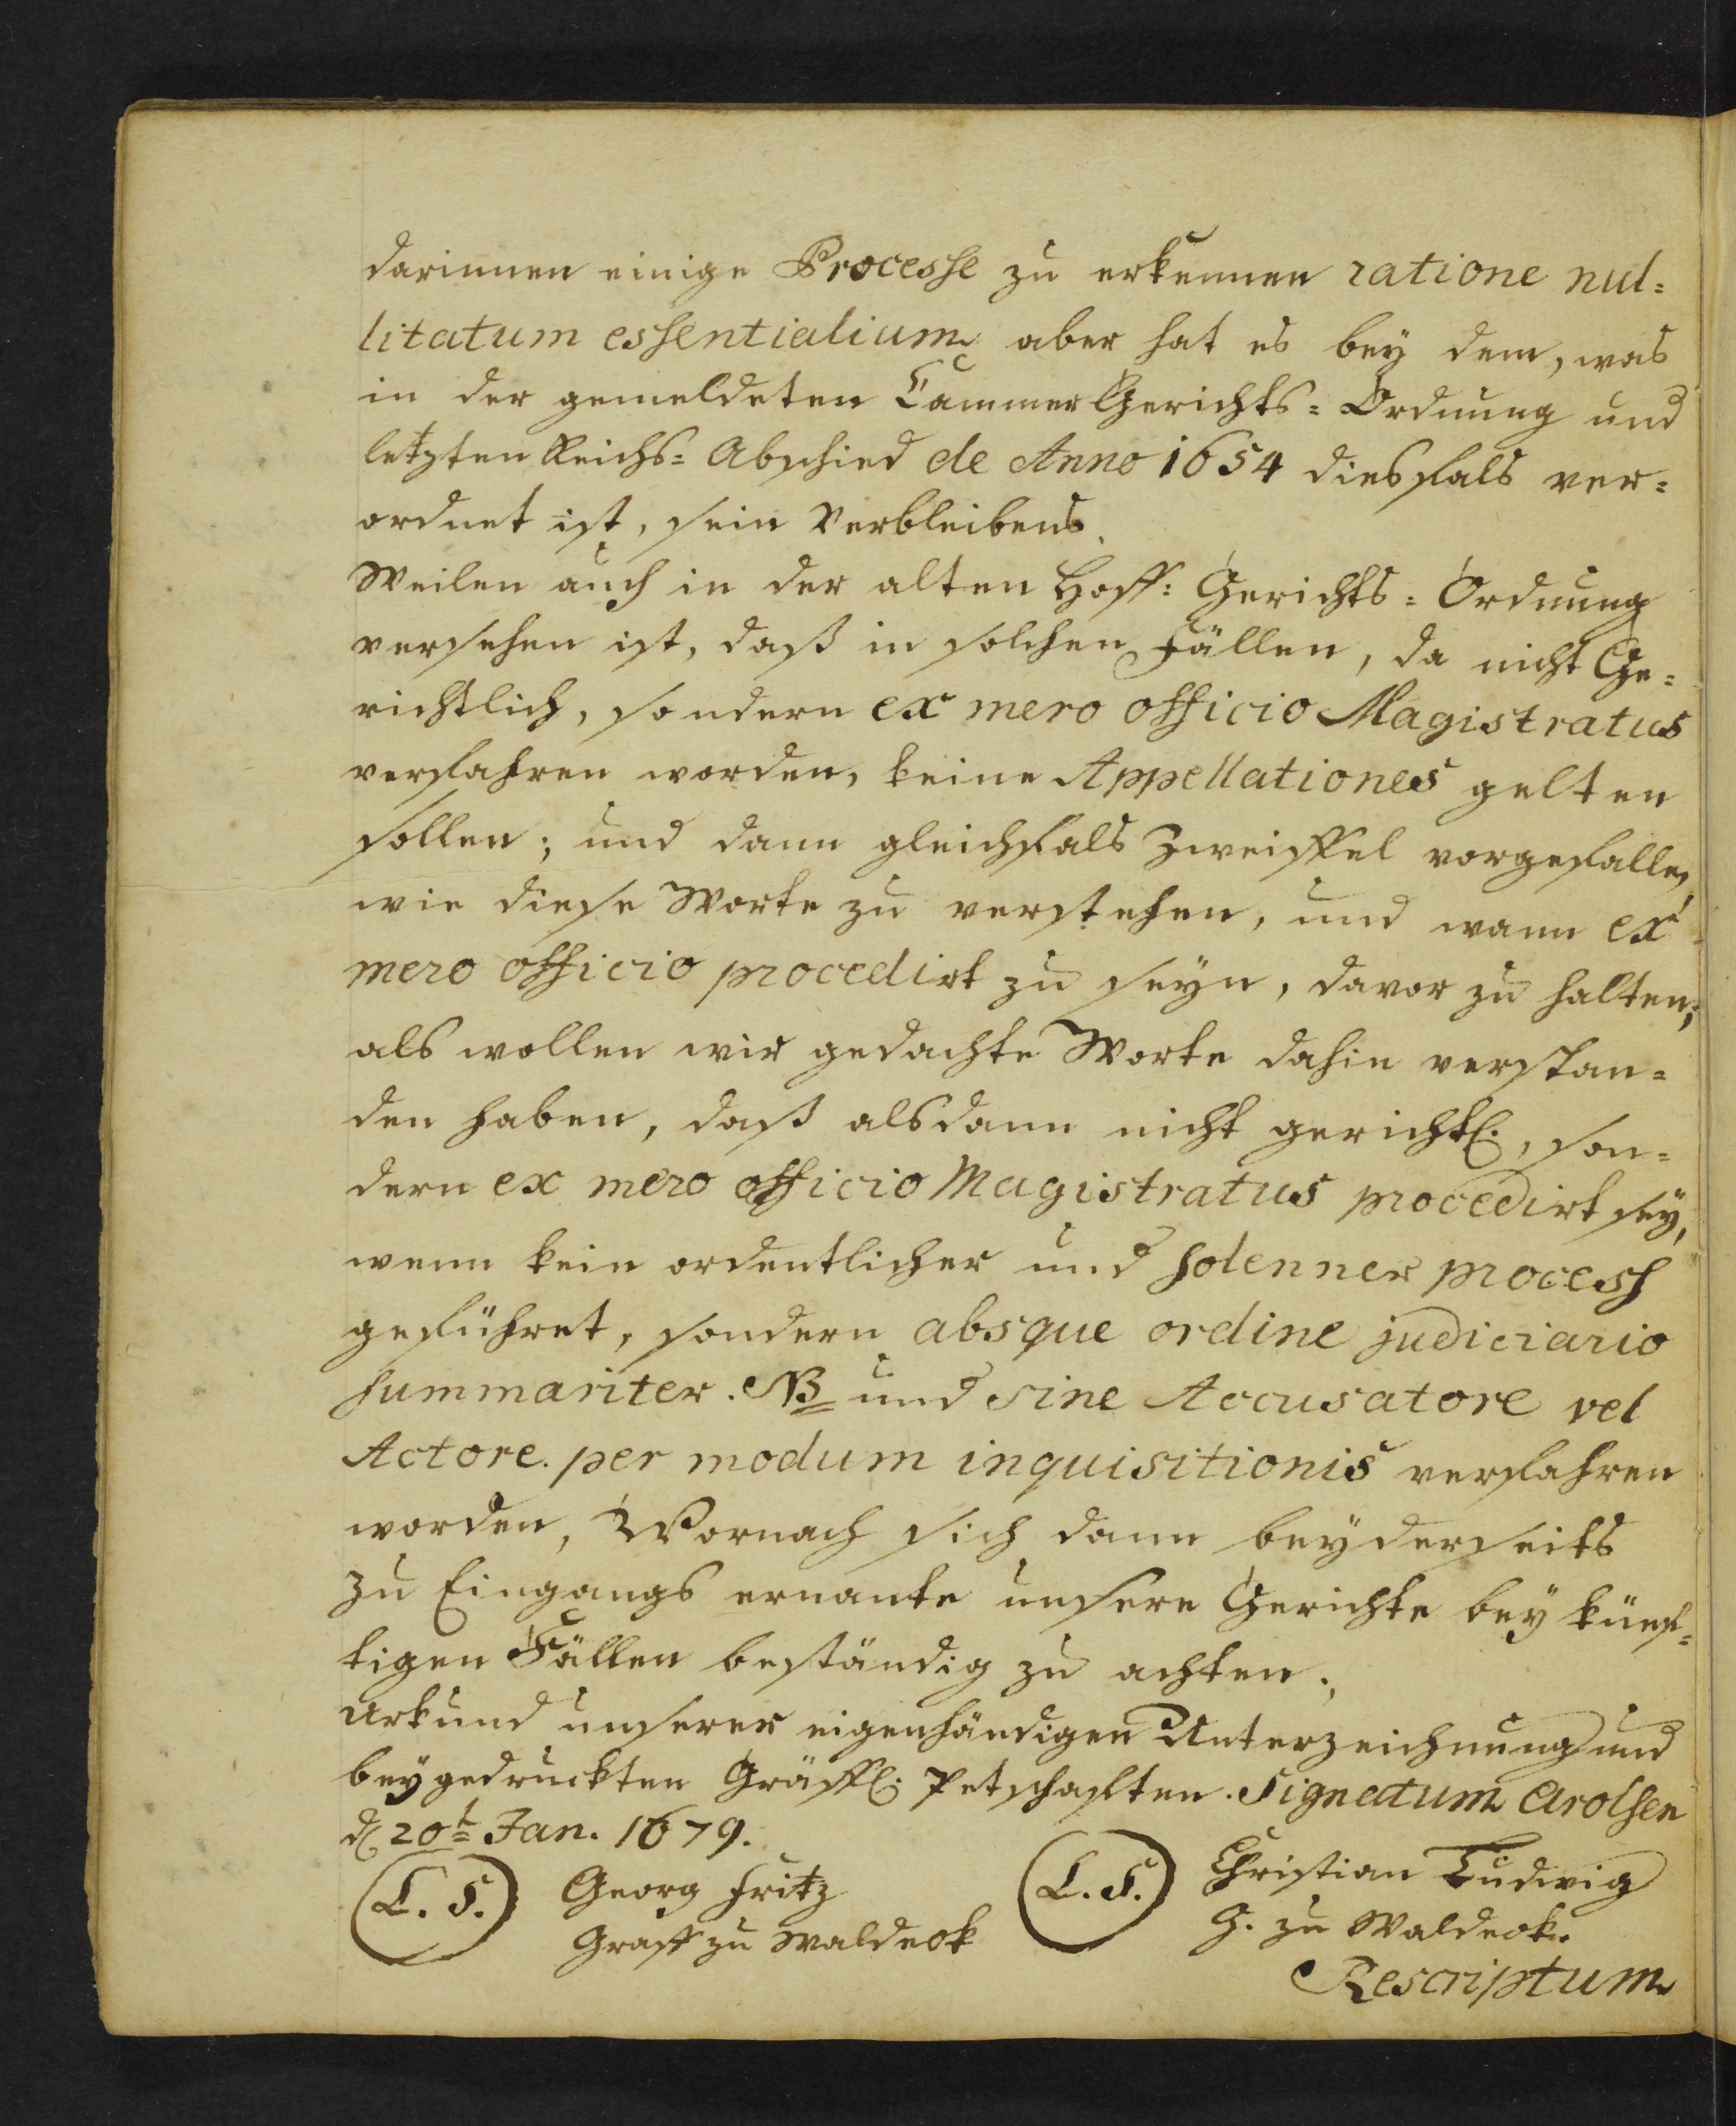 darinnen einige Processe zu erkennen ratione nul=
litatum essentialium aber hat es bey dem, was
in der gemeldeten Cammer Gerichts=Ordnung und
letzten Reichs=Abschied de Anno 1654 diesfals ver=
ordnet ist, sein Verbleibens.
Weilen auch in der alten Hoff=Gerichts=Ordnung
versehen ist, daß in solchen Fällen, da nicht Ge=
richtlich, sondern ex mero officio Magistratus
verfahren worden, keine Appellationes gelten
sollen; und dann gleichfals Zweiffel vorgefallen,
wie diese Worte zu verstehen, und wann ex
mero officio procedirt zu seyn, davor zu halten;
als wollen wir gedachte Worte dahin verstan=
den haben, daß alsdann nicht gerichtl., son=
dern ex mero officio Magistratus procedirt sey,
wenn kein ordentlicher und solenner process
geführet, sondern absque ordine judiciario
summariter. NB und sine Accusatore vel
Actore. per modum inquisitionis verfahren
worden, Wornach sich dann beyderseits
zu Eingangs ernante unsere Gerichte bey künf=
tigen Fällen beständig zu achten.
Urkund unserer eigenhändigen Unterzeichnung und
beygedruckten Gräffl. Petschafften. Signatum Arolsen
d. 20t Jan. 1679.
(L. S.) Georg Fritz
Graff zu Waldeck
(L. S.) Christian Ludwig
G. zu Waldeck.
Rescriptum